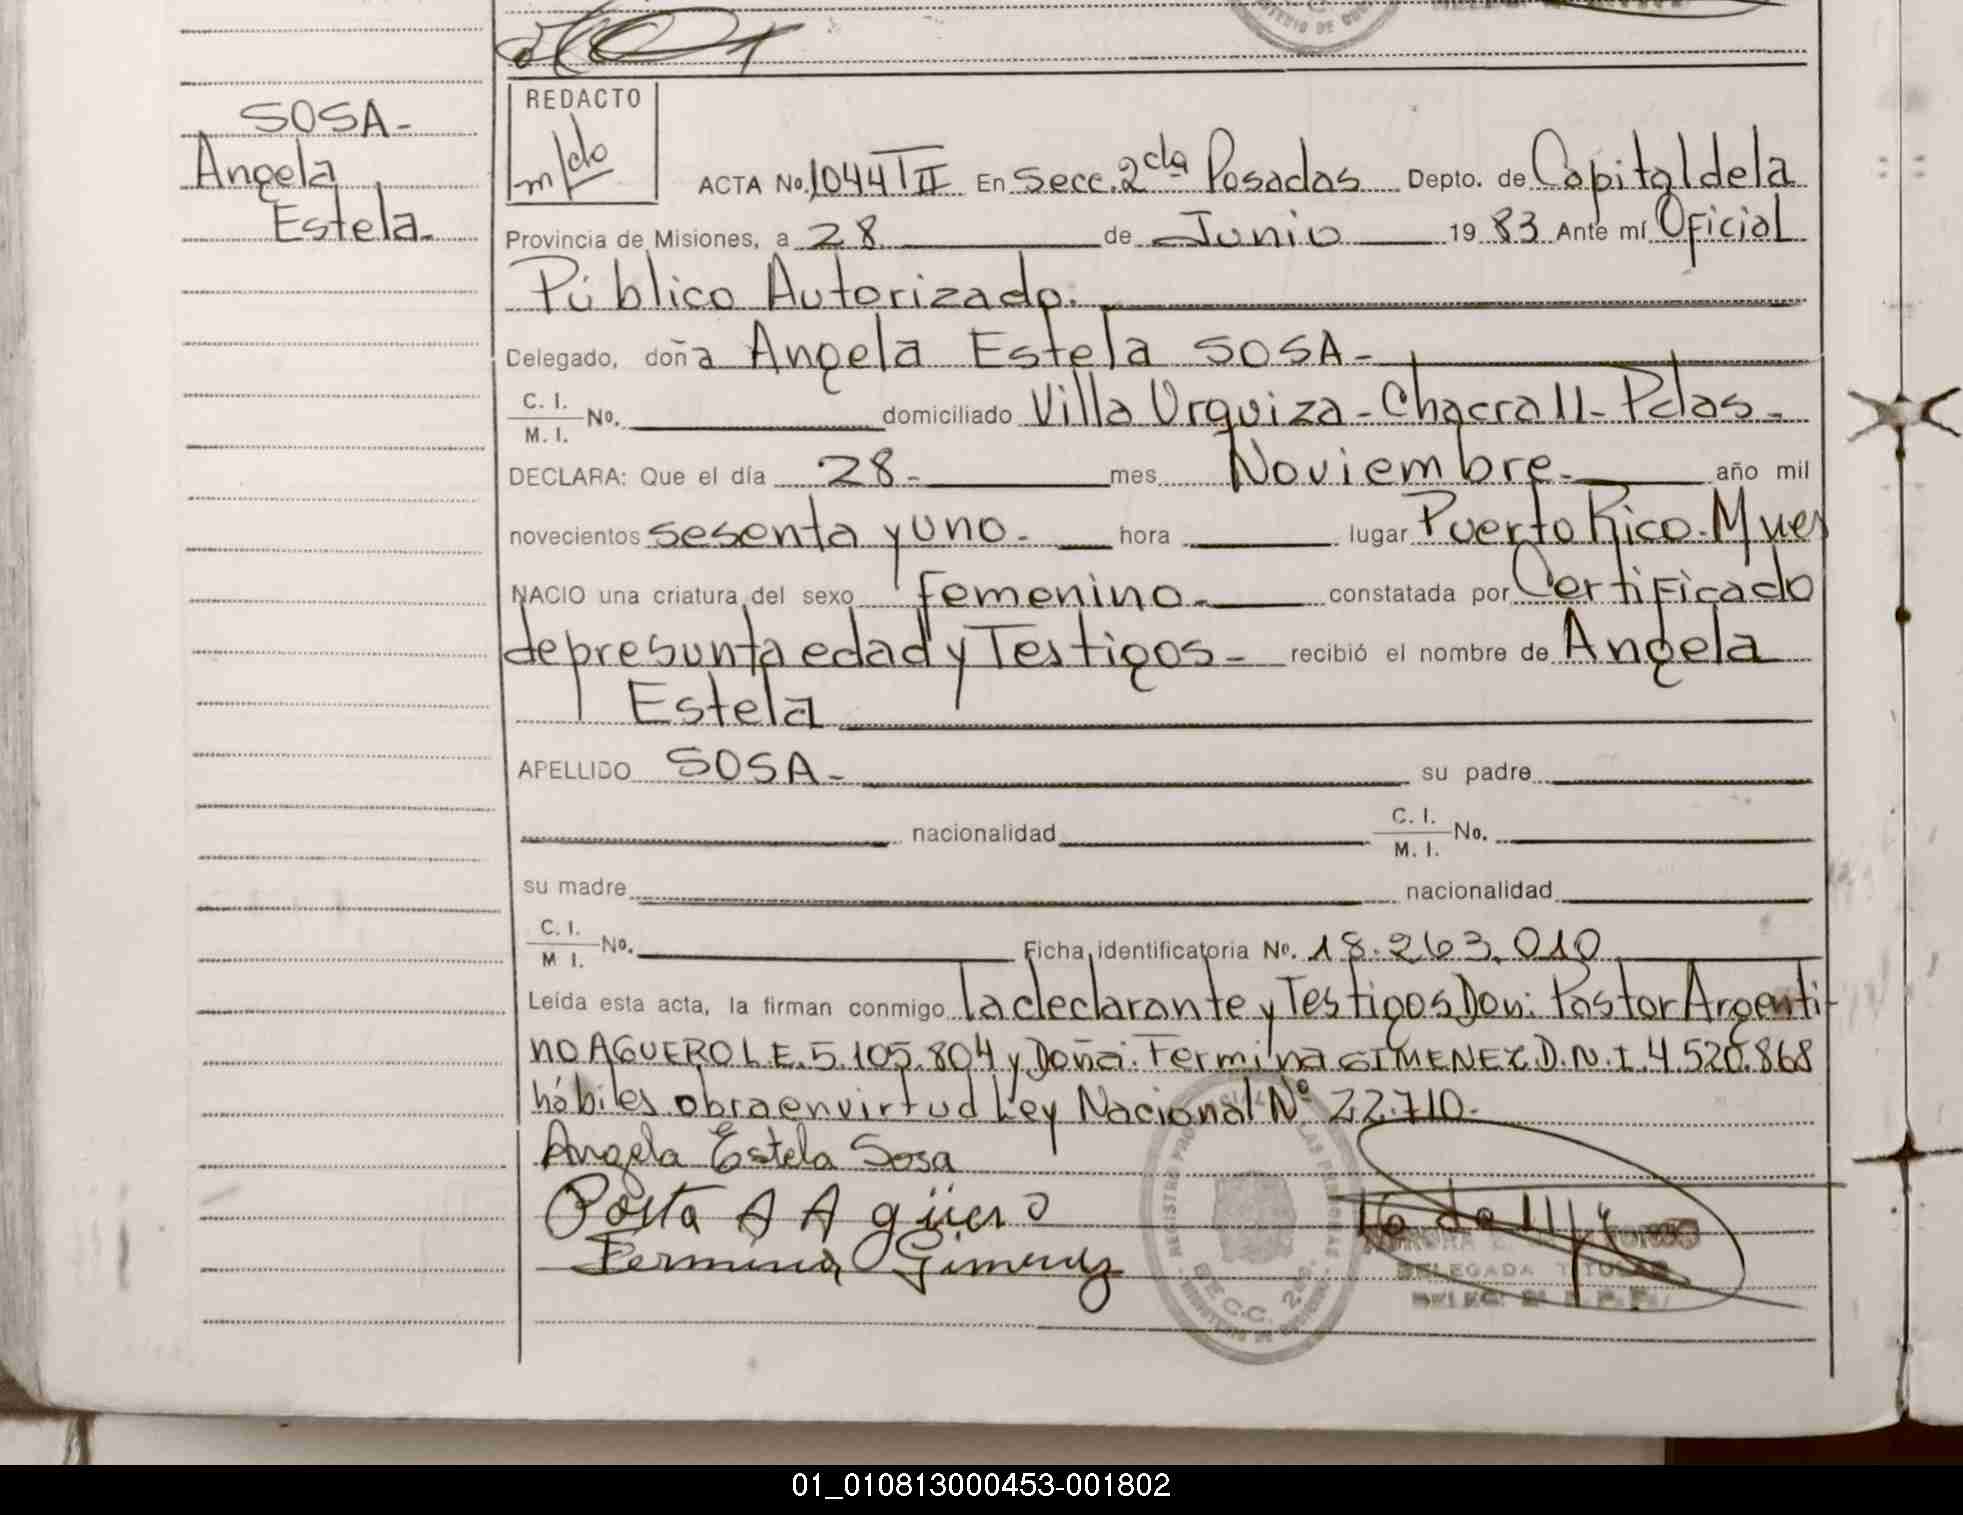 SOSA-
Angela
Estela.
REDACTO
m/do
ACTA No. 1044 T II En Secc. 2da Posadas Depto. de Capital de la
Provincia de Misiones, a 28 de Junio 19 83 Ante mí Oficial
Público Autorizado.
Delegado, doña Angela Estela SOSA-
C. I.
M. I. No. domiciliado Villa Urquiza - Chacra 11 - Pdas -
DECLARA: Que el día 28- mes Noviembre- año mil
novecientos sesenta y uno- hora lugar Puerto Rico. Mnes
NACIO una criatura del sexo femenino- constatada por Certificado
de presunta edad y Testigos- recibió el nombre de Angela
Estela
APELLIDO SOSA- su padre
nacionalidad C. I.
M. I. No.
su madre nacionalidad
C. I.
M I. No. Ficha identificatoria No. 18.263.010
Leída esta acta, la firman conmigo la declarante y Testigos Don: Pastor Argenti-
no AGUERO L.E. 5.105.804 y Doña: Fermina GIMENEZ D.N.I. 4.520.868
hábiles obra en virtud Ley Nacional Nº 22.710-
Angela Estela Sosa
A Agüero
Fermina Gimenez
DELEGADA TITULAR
01_010813000453-001802